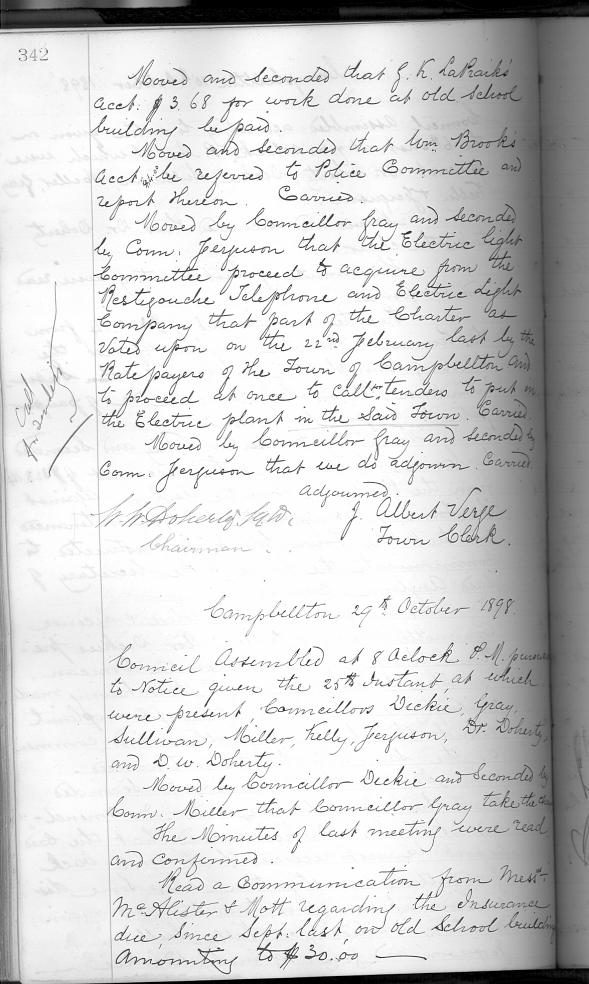 342
Moved and seconded that G. K. LaRaik's
acct. $3.68 for work done at old School
building be paid.
Moved and seconded that Wm. Brook's
acct. be referred to Police Committee and
report thereon. Carried.
Moved by Councillor Gray and seconded
by Coun. Ferguson that the Electric light
Committee proceed to acquire from the
Restigouche Telephone and Electric Light
Company that part of the Charter as
voted upon on the 22nd February last by the
Ratepayers of the Town of Campbellton and
to proceed at once to call for tenders to put in
the Electric plant in the said Town. Carried
Call for tenders
Moved by Councillor Gray and seconded by
Coun. Ferguson that we do adjourn. Carried
Adjourned.
W. W. Doherty M.D. J. Albert Verge
Chairman. Town Clerk.
Campbellton 29th October 1898
Council Assembled at 8 Oclock P.M. pursuant
to Notice given the 25th Instant, at which
were present Councillors Dickie, Gray,
Sullivan, Miller, Kelly, Ferguson, Dr. Doherty,
and D. W. Doherty.
Moved by Councillor Dickie and Seconded by
Coun. Miller that Councillor Gray take the chair
The Minutes of last meeting were read
and confirmed.
Read a Communication from Messrs.
McAlister & Mott regarding the Insurance
due, since Sept. last, on old School building
Amounting to $30.00